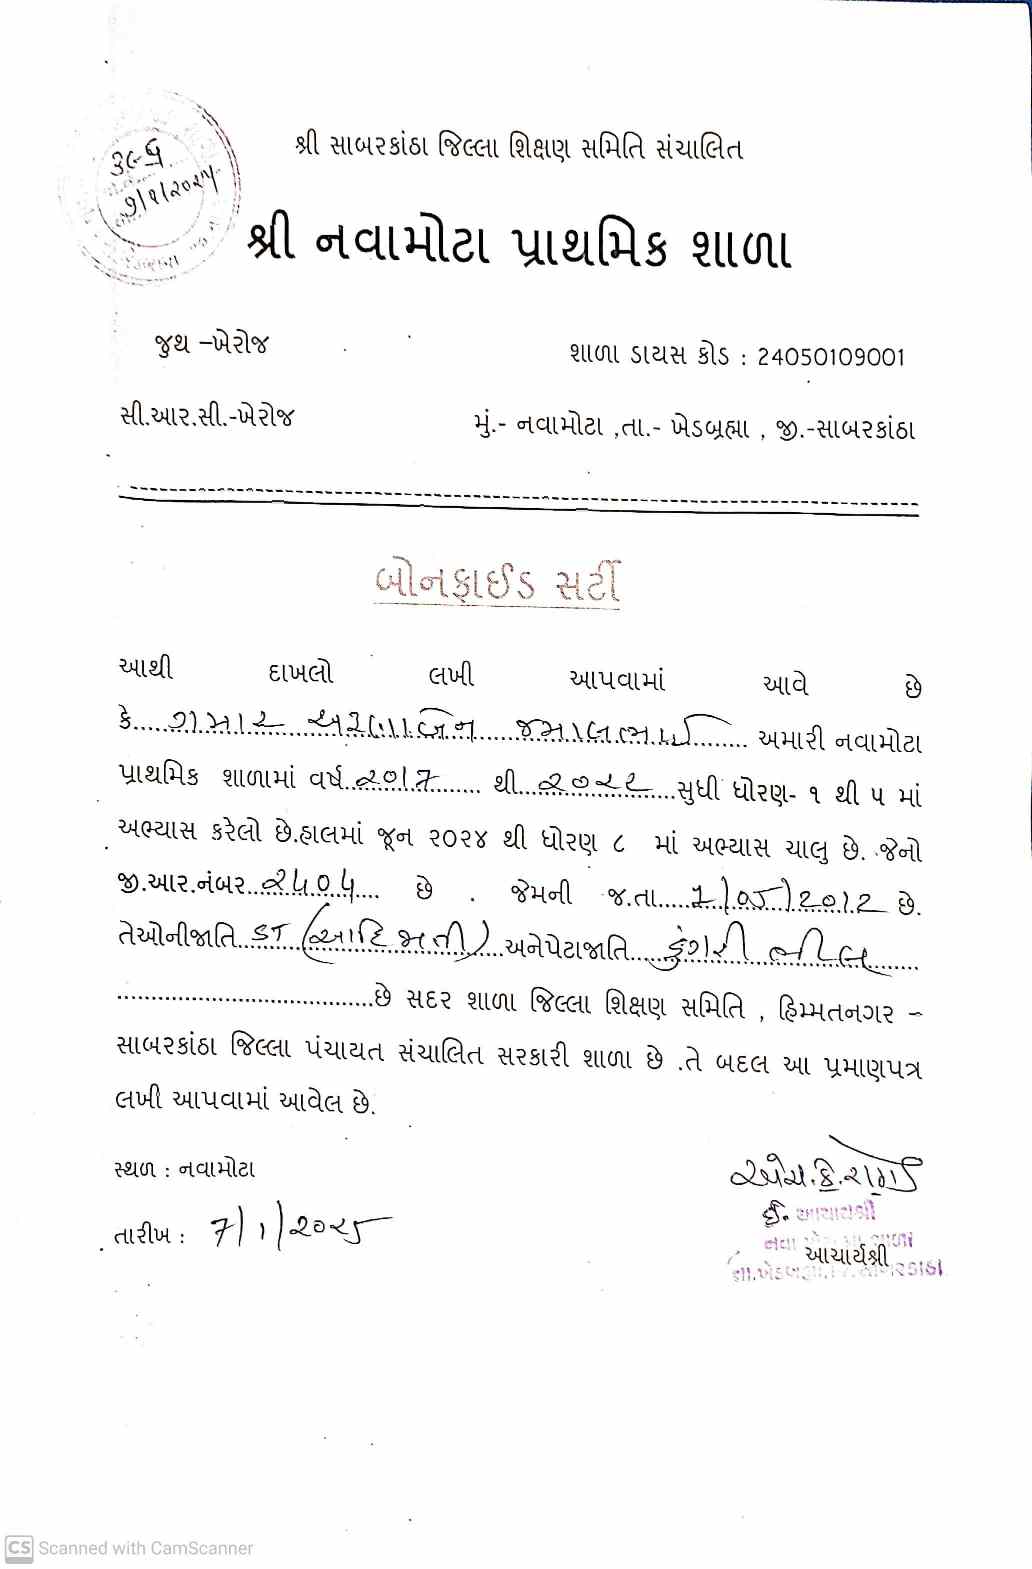 ૩૯૬
૭/૧/૨૦૨૫
શ્રી સાબરકાંઠા જિલ્લા શિક્ષણ સમિતિ સંચાલિત
શ્રી નવામોટા પ્રાથમિક શાળા
જુથ –ખેરોજ
શાળા ડાયસ કોડ : 24050109001
સી.આર.સી.-ખેરોજ
મું.- નવામોટા ,તા.- ખેડબ્રહ્મા , જી.-સાબરકાંઠા
બોનફાઈડ સર્ટી
આથી દાખલો લખી આપવામાં આવે છે
કે....ગમાર અરુણાબેન જમાલભાઈ........ અમારી નવામોટા
પ્રાથમિક શાળામાં વર્ષ..૨૦17....... થી...૨૦૨૨....સુધી ધોરણ- ૧ થી ૫ માં
અભ્યાસ કરેલો છે.હાલમાં જૂન ૨૦૨૪ થી ધોરણ ૮ માં અભ્યાસ ચાલુ છે. જેનો
જી.આર.નંબર..૨૫૦૫.... છે . જેમની જ.તા.....1/05/2012 છે.
તેઓનીજાતિ..ST (આદિજાતી) અનેપેટાજાતિ....ડુંગરી ભીલ.......
...................................છે સદર શાળા જિલ્લા શિક્ષણ સમિતિ , હિમ્મતનગર –
સાબરકાંઠા જિલ્લા પંચાયત સંચાલિત સરકારી શાળા છે .તે બદલ આ પ્રમાણપત્ર
લખી આપવામાં આવેલ છે.
સ્થળ : નવામોટા
તારીખ : 7/1/૨૦૨૫
ઈ. આચાર્યશ્રી
આચાર્યશ્રી
CS Scanned with CamScanner